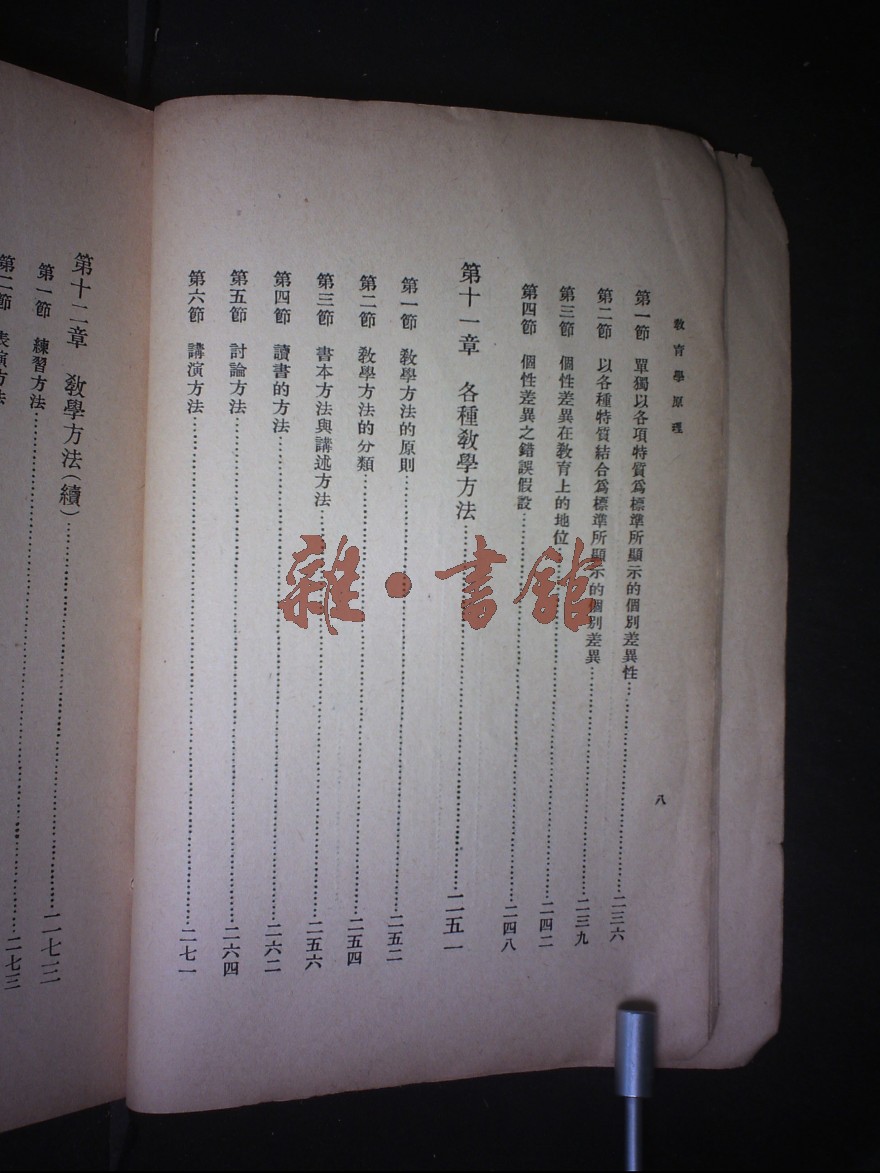 教育學原理
八
第一節 單獨以各項特質爲標準所顯示的個別差異性……二三六
第二節 以各種特質結合爲標準所顯示的個別差異……二三九
第三節 個性差異在教育上的地位……二四二
第四節 個性差異之錯誤假設……二四八
第十一章 各種教學方法……二五一
第一節 教學方法的原則……二五二
第二節 教學方法的分類……二五四
第三節 書本方法與講述方法……二五六
第四節 讀書的方法……二六二
第五節 討論方法……二六四
第六節 講演方法……二七一
第十二章 教學方法(續)……二七三
第一節 練習方法……二七三
第二節 表演方法
雜·書館